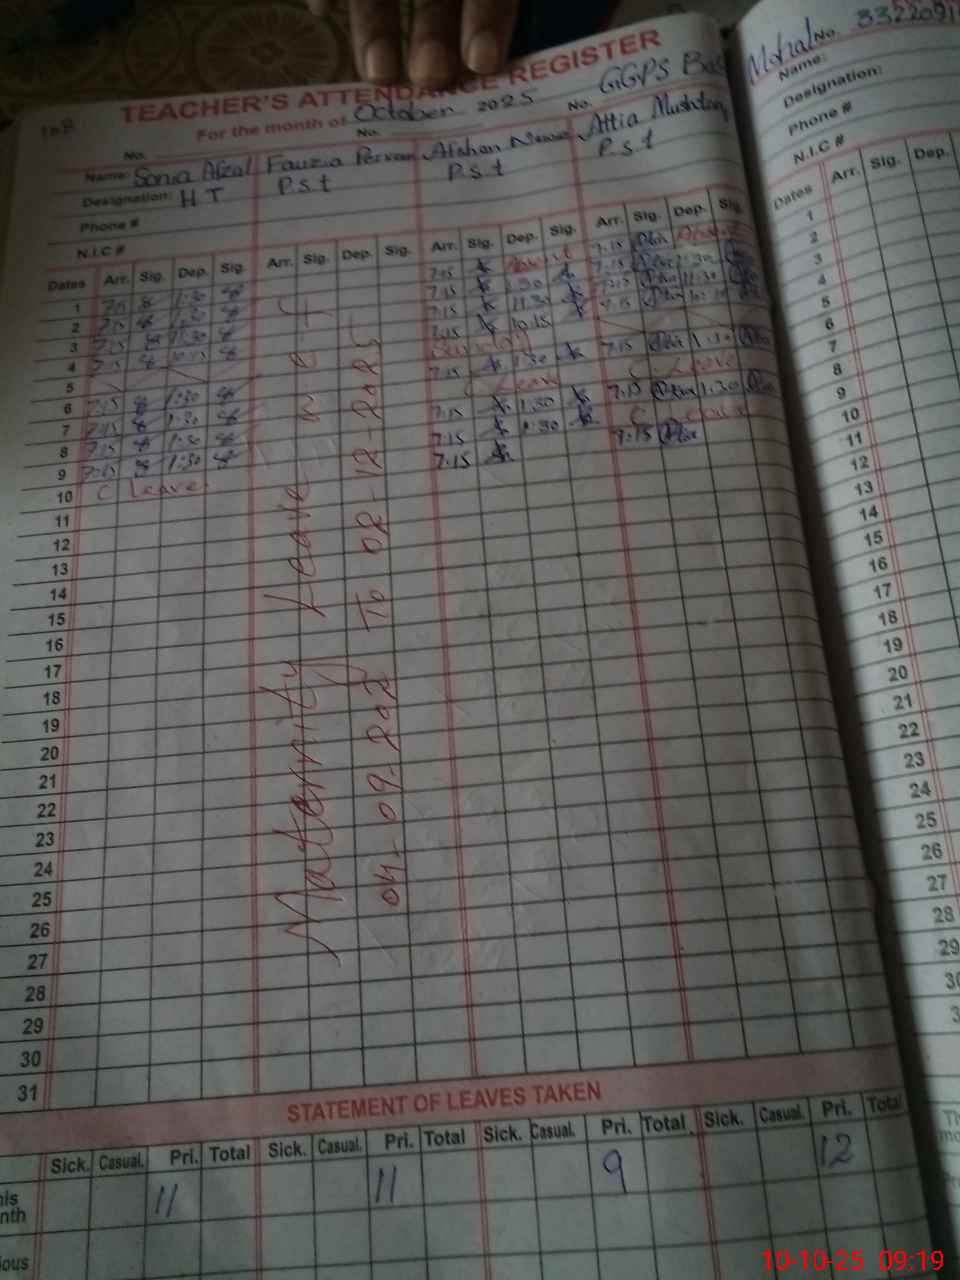 TEACHER'S ATTENDANCE REGISTER
For the month of October 2025 No. GGPS
No. No.
Name: Sonia Afzal Fauzia Perveen Afshan Attia Mushtaq
Designation: H T P.s.t P.s.t P.s.t
Phone #
N.I.C #
Dates Arr. Sig. Dep. Sig. Arr. Sig. Dep. Sig. Arr. Sig. Dep. Sig. Arr. Sig. Dep. Sig.
1 7:15 1:30 7:15 Absent 7:15 Absent
2 7:15 1:30 7:15 1:30 7:15 1:30
3 7:15 1:30 7:15 11:30 7:15 11:30
4 7:15 10:15 7:15 10:15 7:15 10:15
5 Sunday
6 7:15 1:30 7:15 1:30 7:15 1:30
7 7:15 1:30 C Leave C. Leave
8 7:15 1:30 7:15 1:30 7:15 1:30
9 7:15 1:30 7:15 1:30 C Leave
10 C Leave 7:15 7:15
11
12
13
14
15
16
17
18
19
20
21
22
23
24
25
26
27
28
29
30
31
Matternity Leave w.e.f
04-09-202 To 02-12-2025
STATEMENT OF LEAVES TAKEN
Sick. Casual. Pri. Total Sick. Casual. Pri. Total Sick. Casual. Pri. Total Sick. Casual. Pri. Total
11 11 9 12
Mohal No.
Name:
Designation:
Phone #
N.I.C #
Dates Arr. Sig. Dep.
1
2
3
4
5
6
7
8
9
10
11
12
13
14
15
16
17
18
19
20
21
22
23
24
25
26
27
28
29
10-10-25 09:19